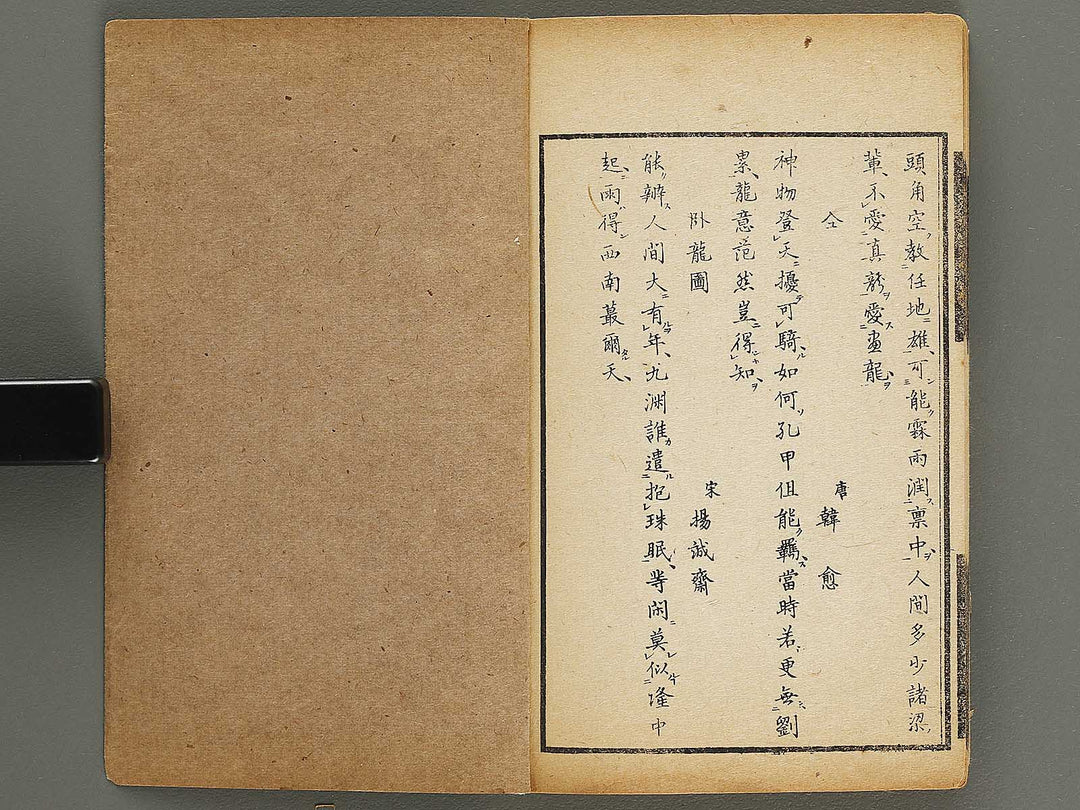 頭角空教任地雄可能霖雨潤寰中人間多少諸梁
輩不愛真龍愛画龍
仝 唐 韓愈
神物登天擾可騎如何孔甲但能羈當時若更無劉
累龍意茫然豈得知
卧龍圖 宋 揚誠齋
能辦人間大有年九渊誰遣抱珠眠等闲莫似隆中
起雨得西南蕞爾天